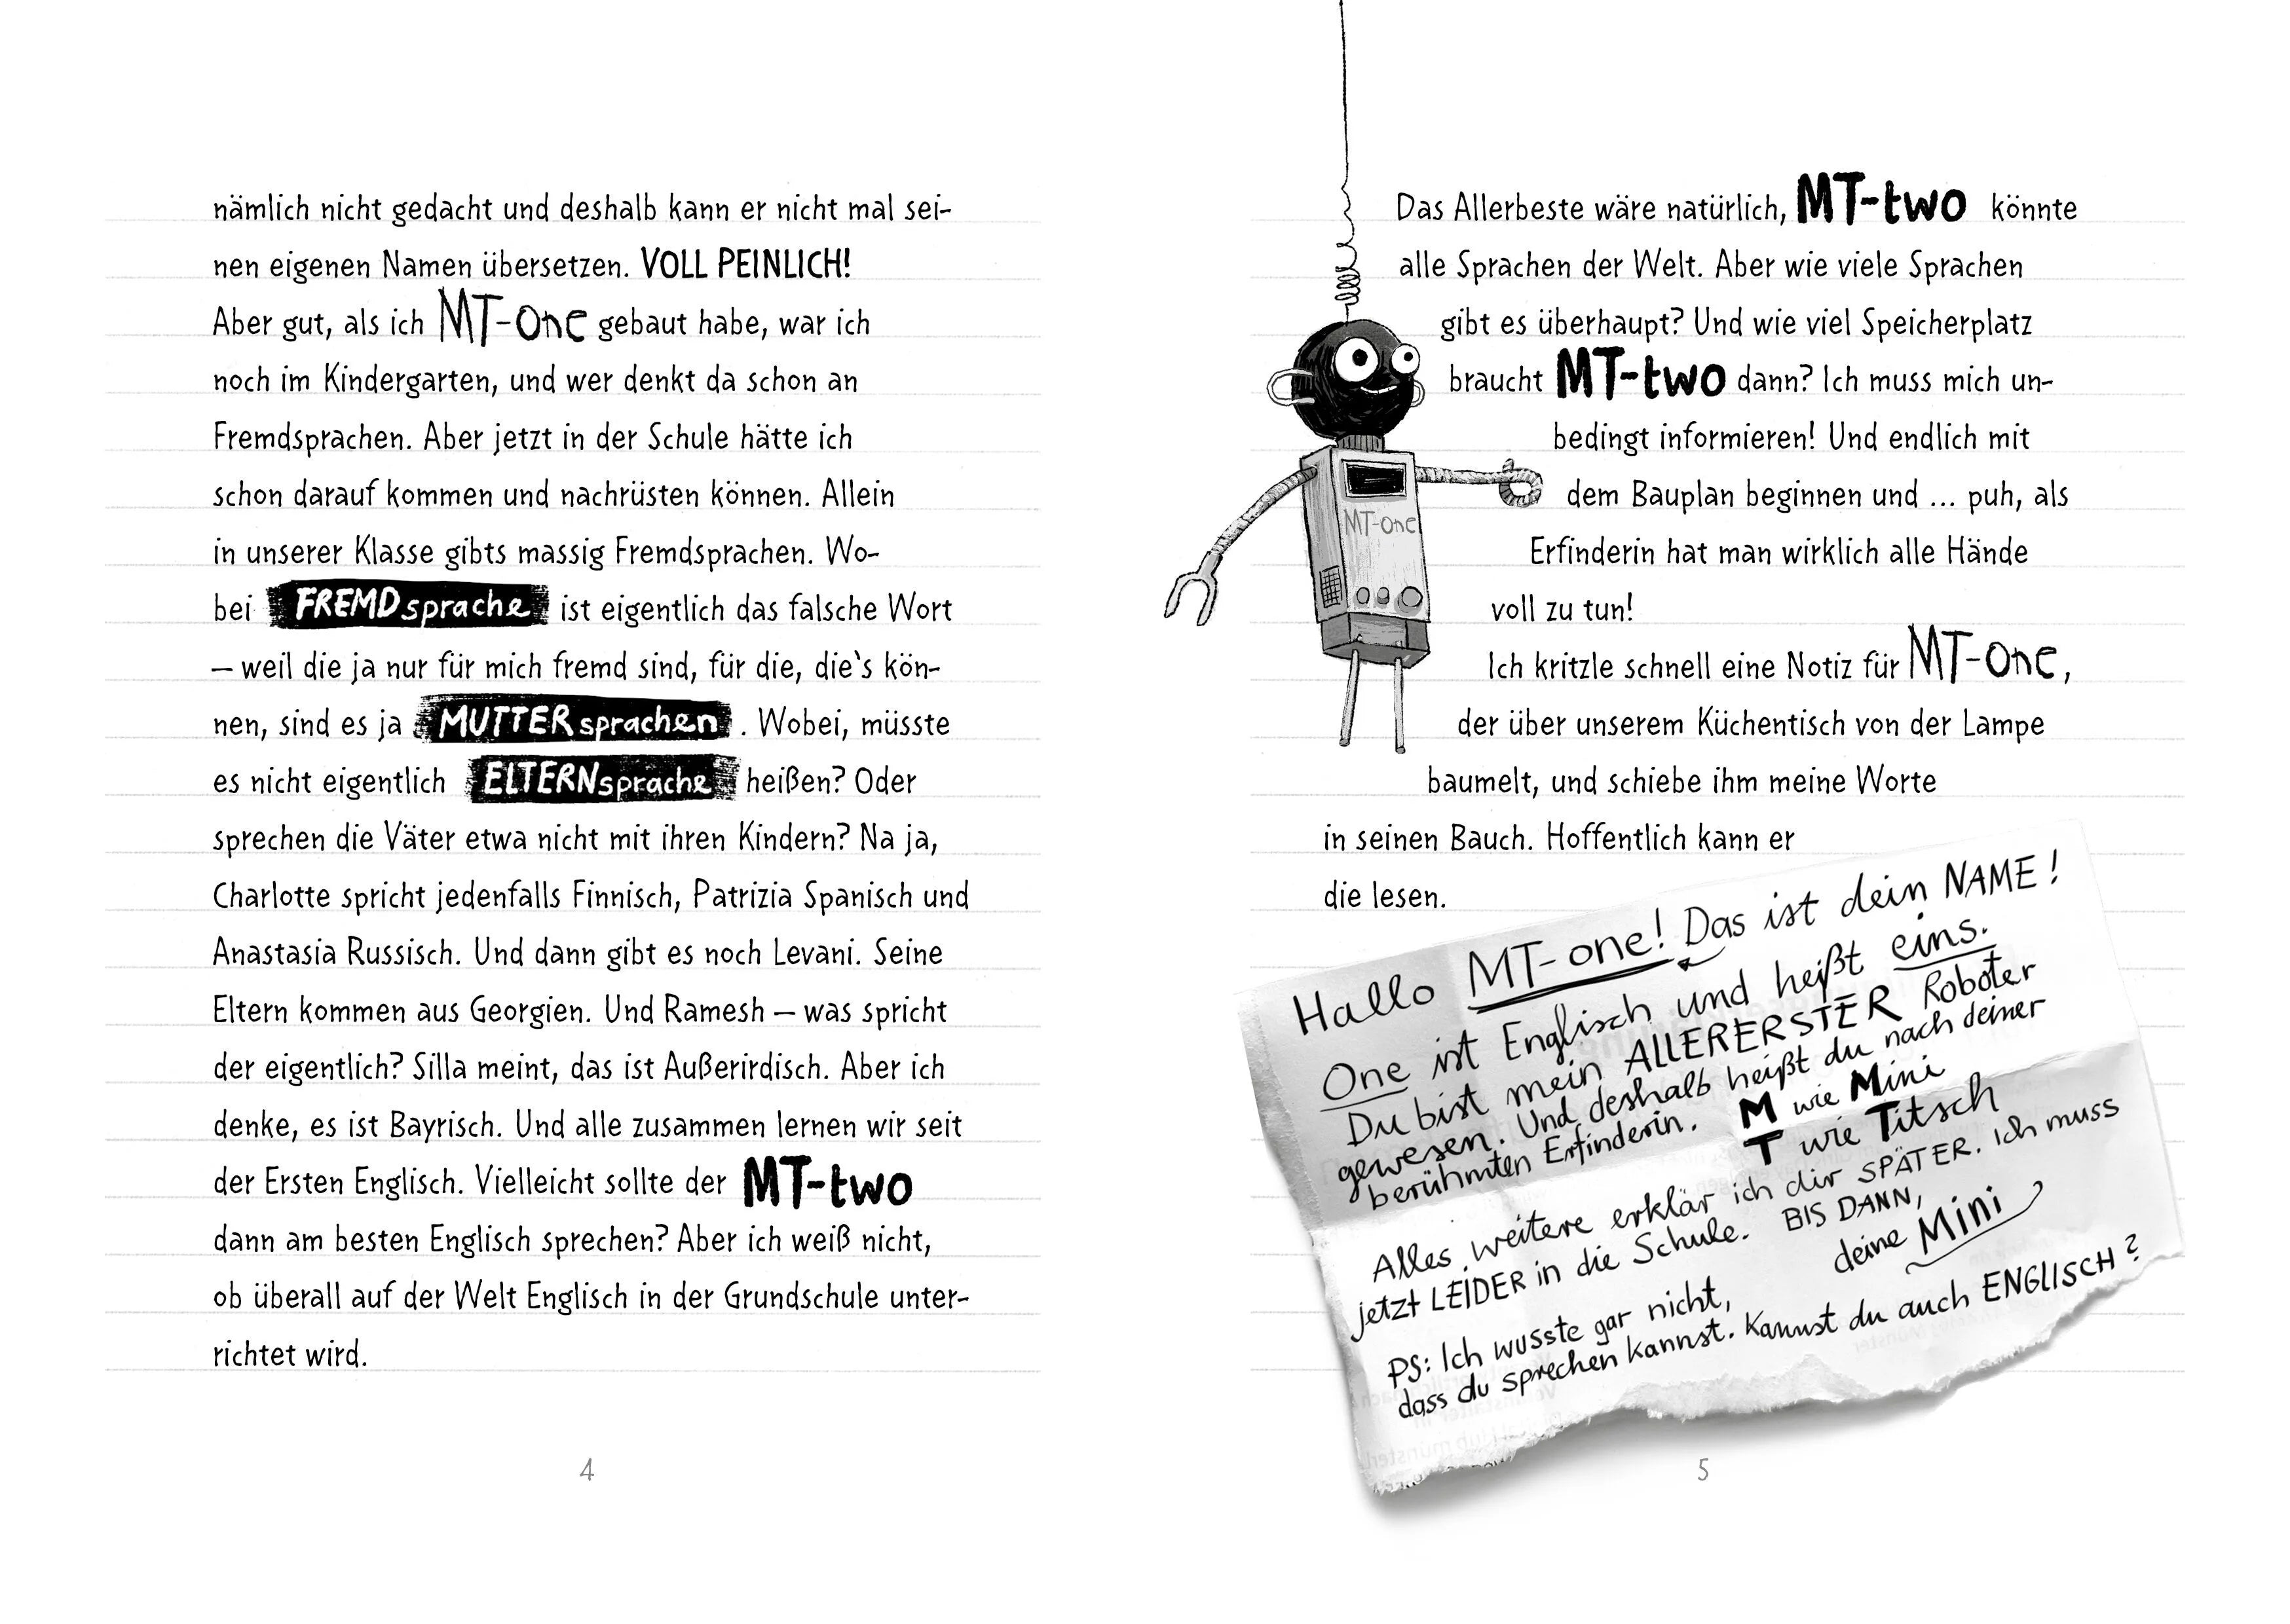 nämlich nicht gedacht und deshalb kann er nicht mal sei-
nen eigenen Namen übersetzen. VOLL PEINLICH!
Aber gut, als ich MT-one gebaut habe, war ich
noch im Kindergarten, und wer denkt da schon an
Fremdsprachen. Aber jetzt in der Schule hätte ich
schon darauf kommen und nachrüsten können. Allein
in unserer Klasse gibts massig Fremdsprachen. Wo-
bei FREMDsprache ist eigentlich das falsche Wort
– weil die ja nur für mich fremd sind, für die, die‵s kön-
nen, sind es ja MUTTERsprachen . Wobei, müsste
es nicht eigentlich ELTERNsprache heißen? Oder
sprechen die Väter etwa nicht mit ihren Kindern? Na ja,
Charlotte spricht jedenfalls Finnisch, Patrizia Spanisch und
Anastasia Russisch. Und dann gibt es noch Levani. Seine
Eltern kommen aus Georgien. Und Ramesh – was spricht
der eigentlich? Silla meint, das ist Außerirdisch. Aber ich
denke, es ist Bayrisch. Und alle zusammen lernen wir seit
der Ersten Englisch. Vielleicht sollte der MT-two
dann am besten Englisch sprechen? Aber ich weiß nicht,
ob überall auf der Welt Englisch in der Grundschule unter-
richtet wird.
4
Das Allerbeste wäre natürlich, MT-two könnte
alle Sprachen der Welt. Aber wie viele Sprachen
gibt es überhaupt? Und wie viel Speicherplatz
braucht MT-two dann? Ich muss mich un-
bedingt informieren! Und endlich mit
dem Bauplan beginnen und ... puh, als
Erfinderin hat man wirklich alle Hände
voll zu tun!
Ich kritzle schnell eine Notiz für MT-one,
der über unserem Küchentisch von der Lampe
baumelt, und schiebe ihm meine Worte
in seinen Bauch. Hoffentlich kann er
die lesen.
MT-one
Hallo MT-one! Das ist dein NAME!
One ist Englisch und heißt eins.
Du bist mein ALLERERSTER Roboter
gewesen. Und deshalb heißt du nach deiner
berühmten Erfinderin. M wie Mini
T wie Titsch
Alles weitere erklär ich dir SPÄTER. Ich muss
jetzt LEIDER in die Schule. BIS DANN,
deine Mini
PS: Ich wusste gar nicht,
dass du sprechen kannst. Kannst du auch ENGLISCH?
5